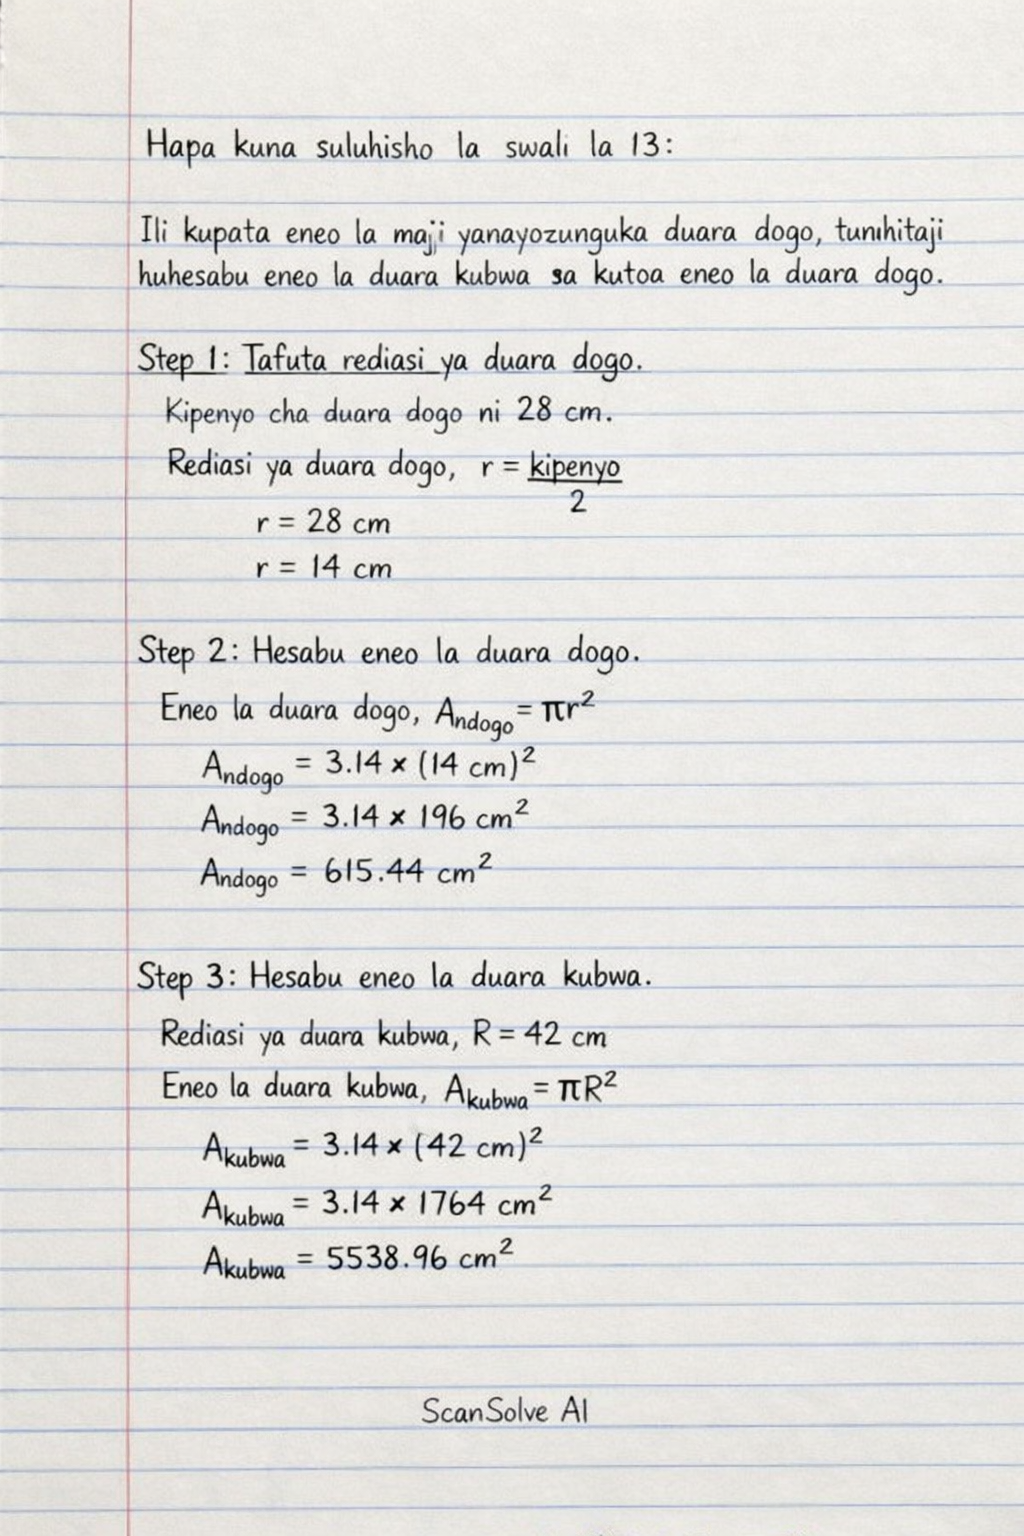 Hapa kuna suluhisho la swali la 13:
Ili kupata eneo la maji yanayozunguka duara dogo, tunihitaji
huhesabu eneo la duara kubwa sa kutoa eneo la duara dogo.
Step 1: Tafuta rediasi ya duara dogo.
Kipenyo cha duara dogo ni 28 cm.
Rediasi ya duara dogo, r = kipenyo
2
r = 28 cm
r = 14 cm
Step 2: Hesabu eneo la duara dogo.
Eneo la duara dogo, Andogo = πr²
Andogo = 3.14 × (14 cm)²
Andogo = 3.14 × 196 cm²
Andogo = 615.44 cm²
Step 3: Hesabu eneo la duara kubwa.
Rediasi ya duara kubwa, R = 42 cm
Eneo la duara kubwa, Akubwa = πR²
Akubwa = 3.14 × (42 cm)²
Akubwa = 3.14 × 1764 cm²
Akubwa = 5538.96 cm²
ScanSolve AI